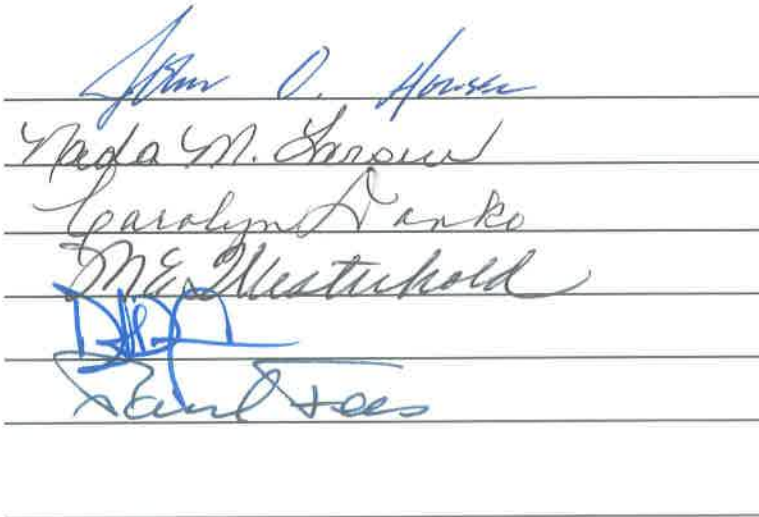 John O. Houser
Nada M. Larsen
Carolyn Danko
M E Westerhold
Paul Fees